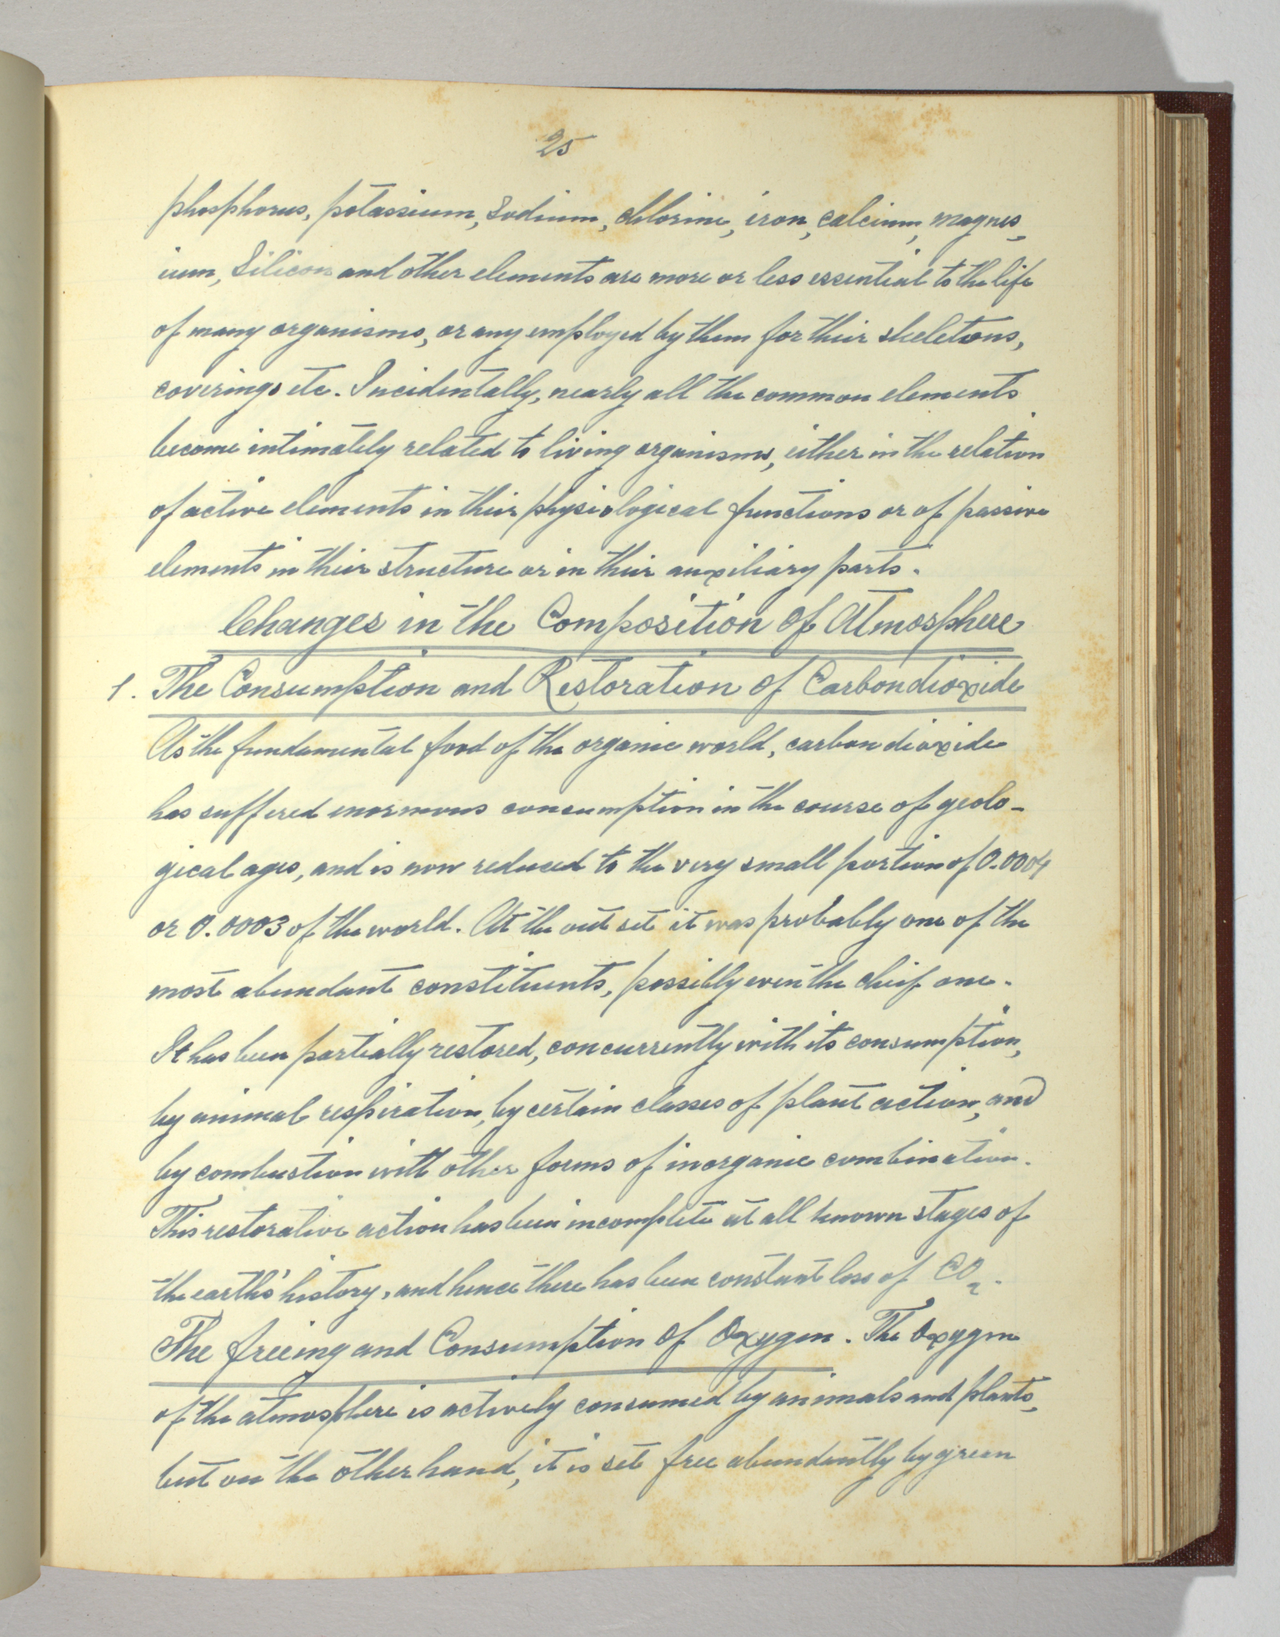 25
phosphorus, potassium, Sodium, chlorine, iron, calcium, magnes
ium, Silicon and other elements are more or less essential to the life
of many organisms, or any employed by them for their skeletons,
coverings etc. Incidentally, nearly all the common elements
become intimately related to living organisms, either in the relation
of active elements in their physiological functions or of passive
elements in their structure or in their auxiliary parts.
Changes in the Composition of Atmosphere
1. The Consumption and Restoration of Carbondioxide
As the fundamental food of the organic world, carbon dioxide
has suffered enormous consumption in the course of geolo-
gical ages, and is now reduced to the very small portion of 0.0004
or 0.0003 of the world. At the out set it was probably one of the
most abundant constituents, possibly even the chief one.
It has been partially restored, concurrently with its consumption,
by animal respiration, by certain classes of plant action, and
by combustion with other forms of inorganic combination.
This restorative action has been incomplete at all known stages of
the earth's history, and hence there has been constant loss of CO2.
The freeing and Consumption of Oxygen. The Oxygen
of the atmosphere is actively consumed by animals and plants,
but on the other hand, it is set free abundantly by green